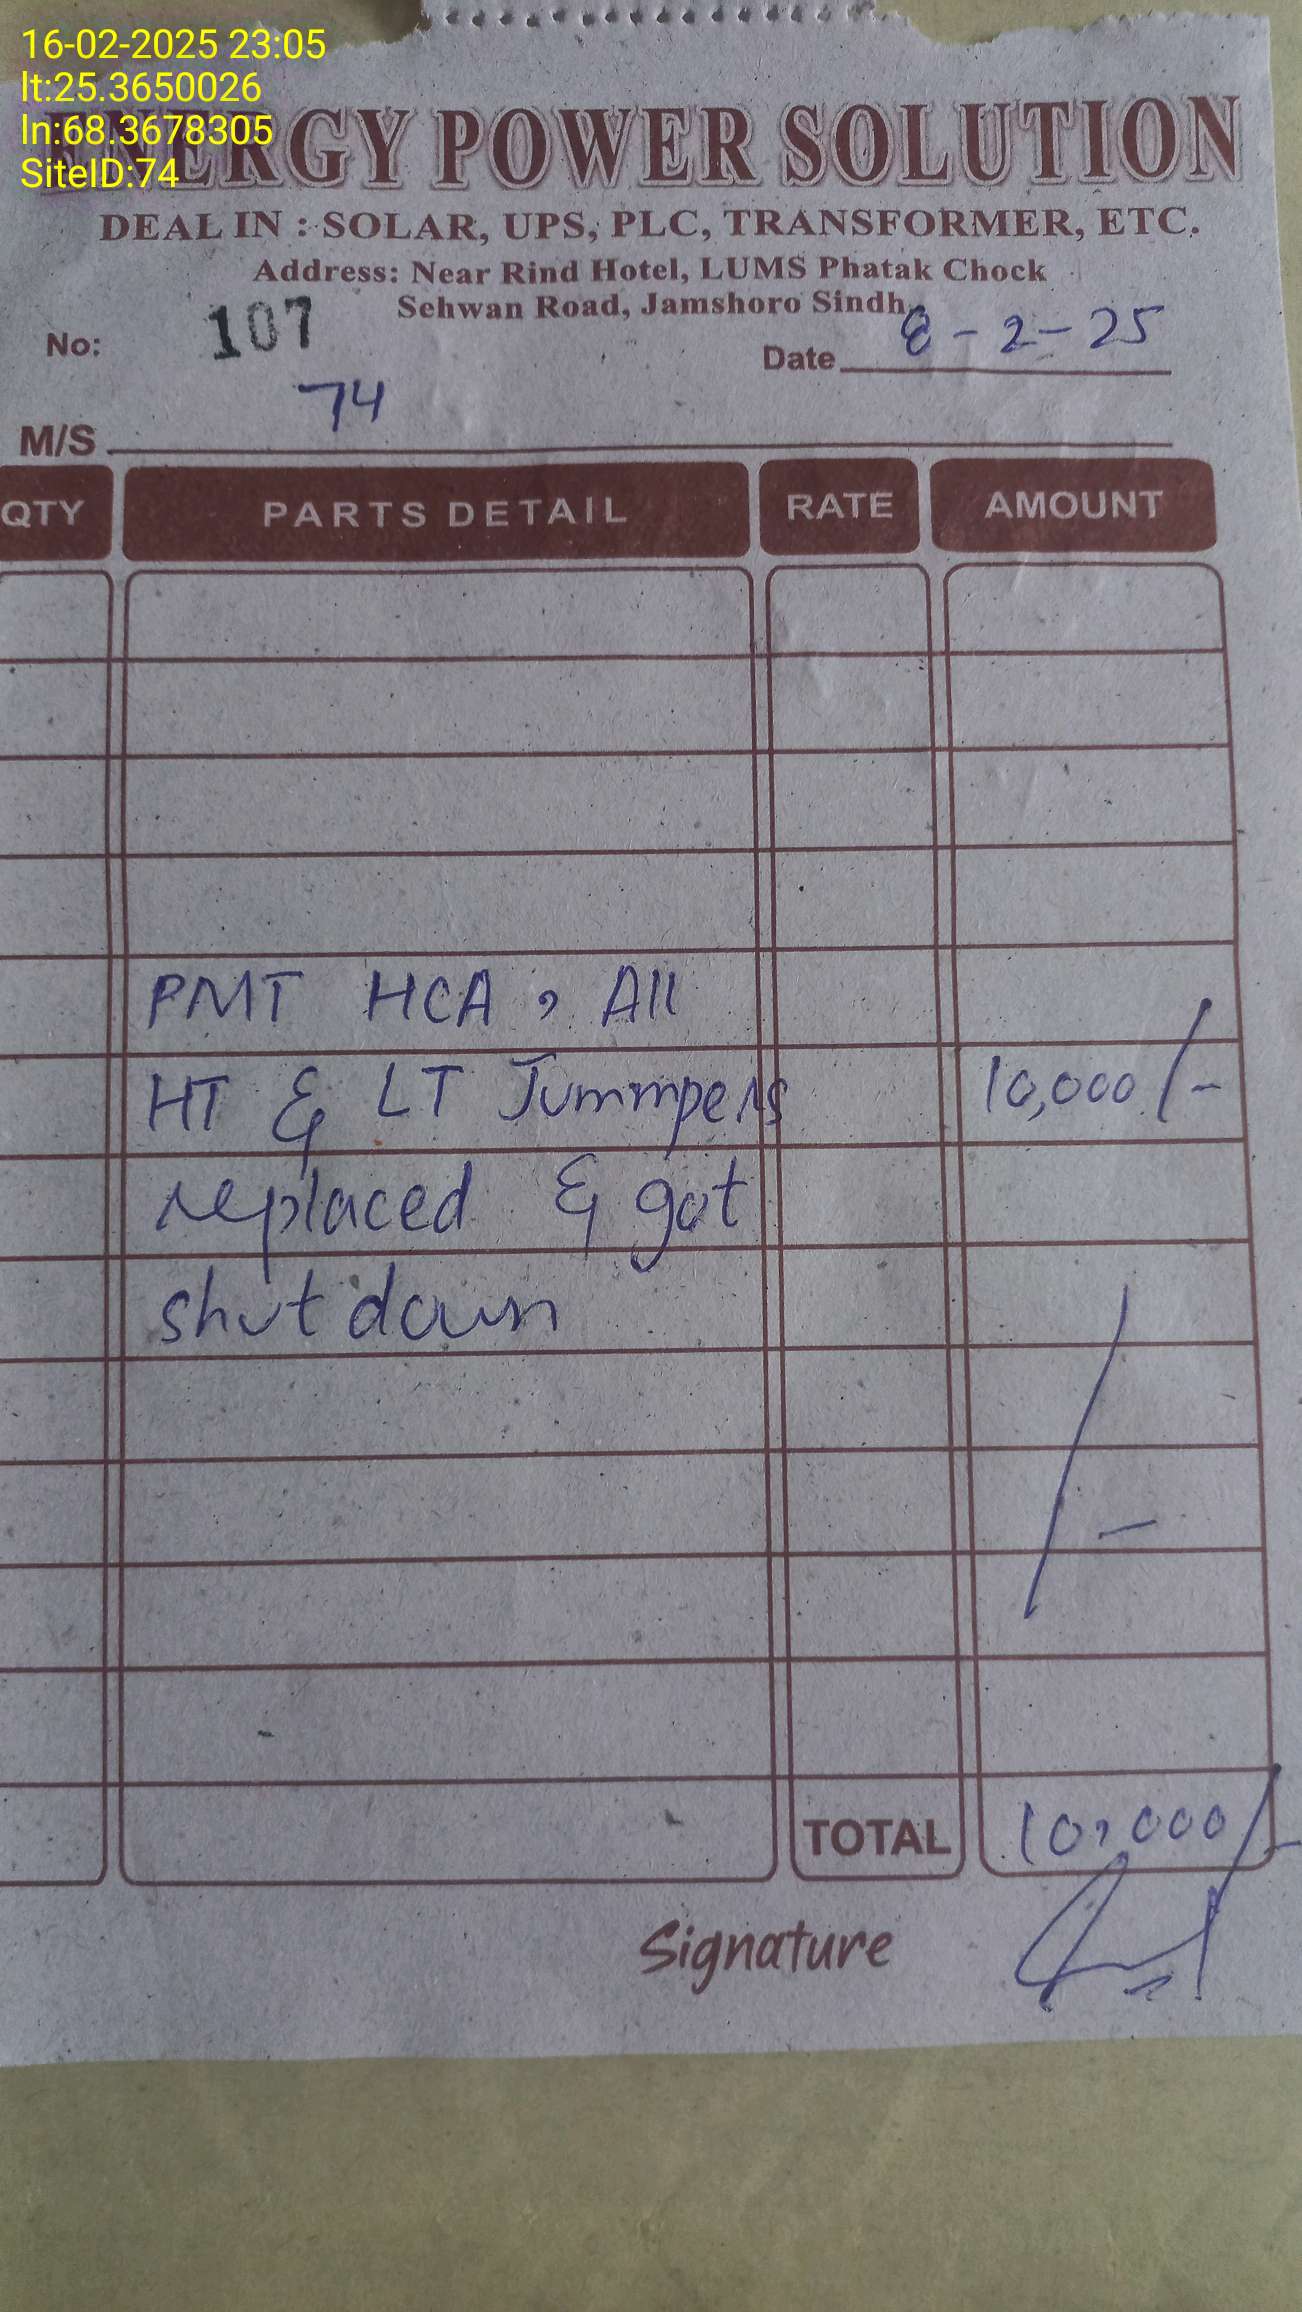 16-02-2025 23:05
lt:25.3650026
ln:68.3678305
SiteID:74
ENERGY POWER SOLUTION
DEAL IN : SOLAR, UPS, PLC, TRANSFORMER, ETC.
Address: Near Rind Hotel, LUMS Phatak Chock
Sehwan Road, Jamshoro Sindh.
No: 107
Date 8-2-25
M/S 74
QTY PARTS DETAIL RATE AMOUNT
PMT HCA, All
HT & LT Jummpers 10,000/-
replaced & got
shutdown
/-
TOTAL 10,000/-
Signature